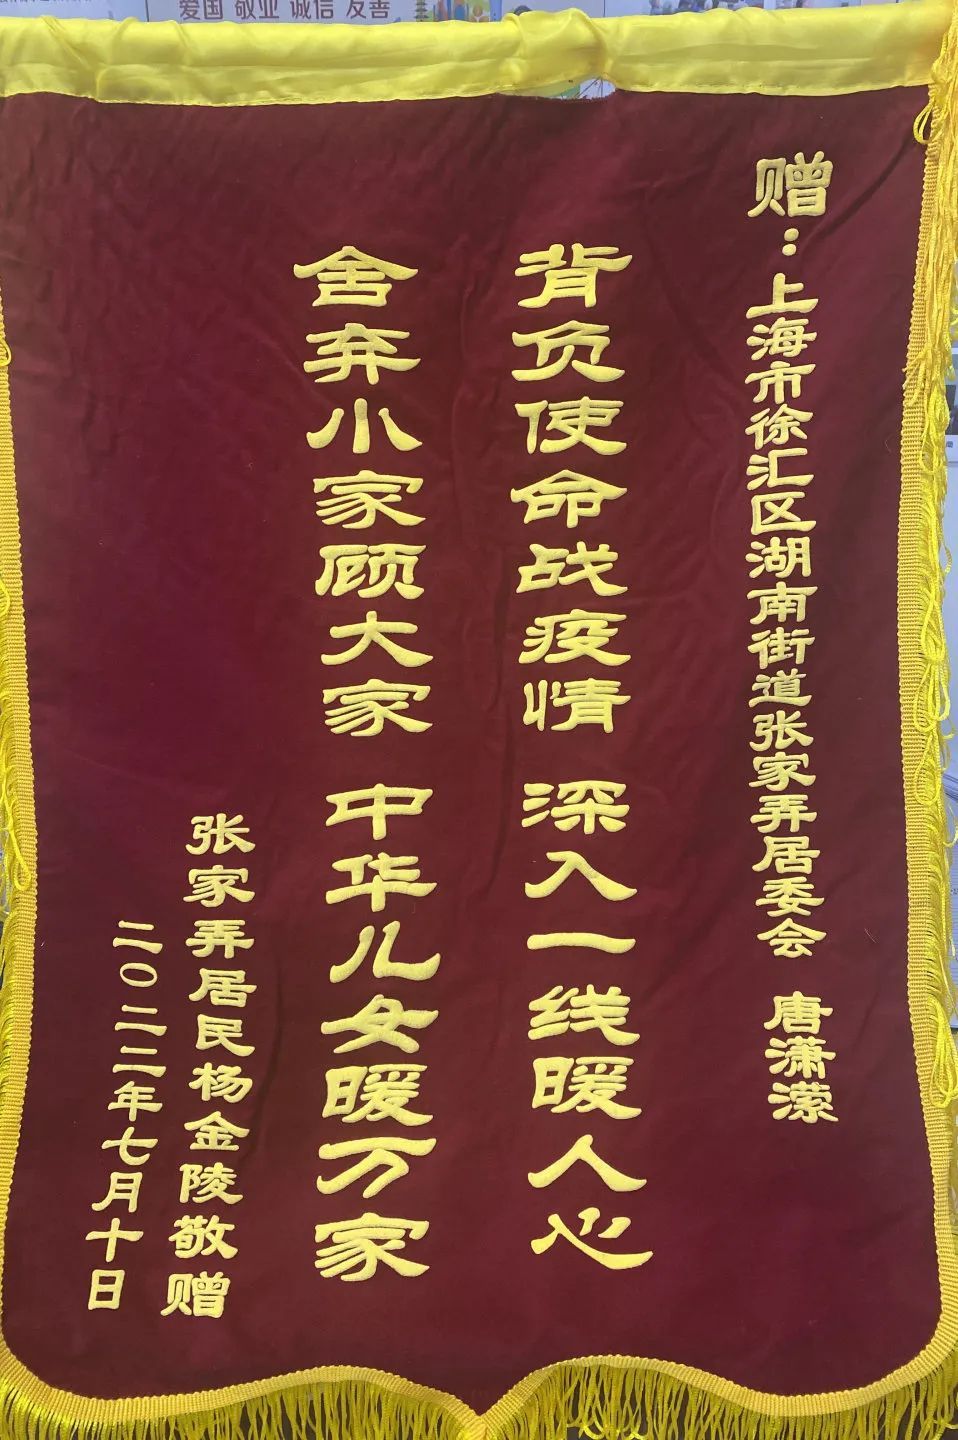 爱国 敬业 诚信 友善
赠：上海市徐汇区湖南街道张家弄居委会 唐潇濛
背负使命战疫情 深入一线暖人心
舍弃小家顾大家 中华儿女暖万家
张家弄居民杨金陵敬赠
二〇二二年七月十日